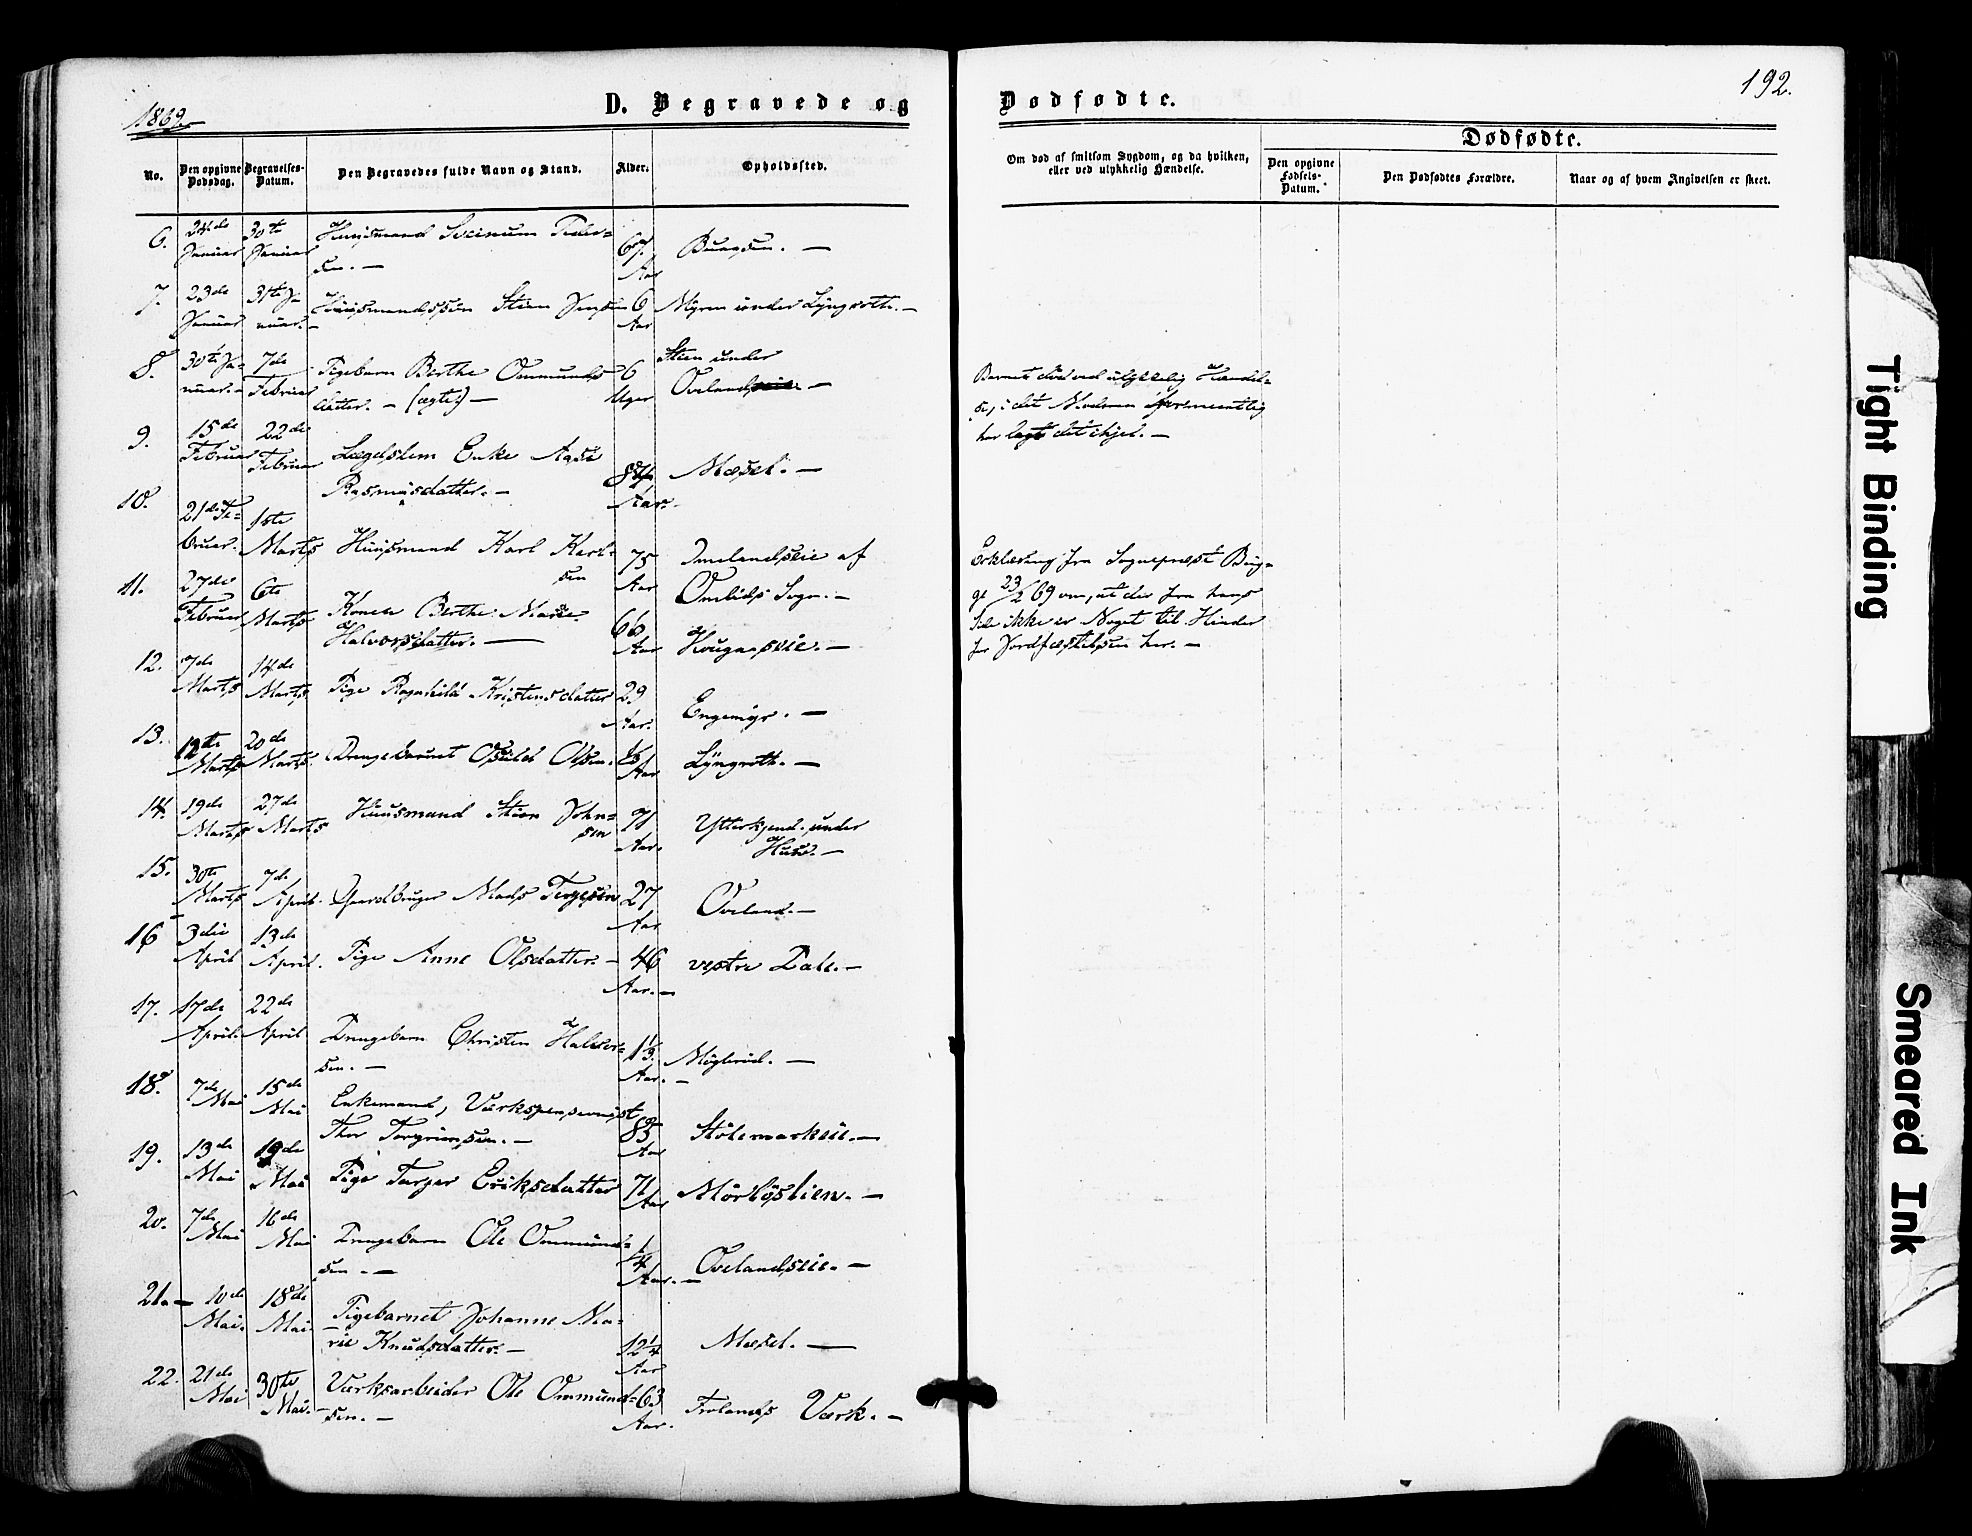 1869.
D. Begravede og
Dødfødte.
192.
No.
Den opgivne Dødsdag.
Begravelses-Datum.
Den Begravedes fulde Navn og Stand.
Alder.
Opholdssted.
Om død af smitsom Sygdom, og da hvilken, eller ved ulykkelig Hændelse.
Dødfødte.
Den opgivne Fødsels-Datum.
Den Dødfødtes Forældre.
Naar og af hvem Angivelsen er skeet.
6. 24de Januar 30te Januar Huusmand Peder-
sen. — 67 Aar —
7. 23de Januar 31te Januar. Huusmandssøn Stian Jensen 6 Aar Myren under Lyngroth. —
8. 30te Januar. 7de Februar Pigebarn Berthe Ommunds-
datter. — (ægte) — 6 Uger Stien under
Oveland —
Barnet død ved ulykkelig Hændel-
se, idet Moderen formeentlig
har lagt det ihjel. —
9. 15de Februar 22de Februar Lægdslem Enke Aase
Rasmusdatter. — 84 Aar. Mæsel. —
10. 21de Februar. 1ste Marts Huusmand Karl Karl-
sen 75 Aar Omelandseie af
Omlids Sogn. —
Erklæring fra Sognepræst Bug-
ge 23/2 69 om, at der fra hans
Side ikke er Noget til Hinder
for Jordfæstelsen her. —
11. 27de Februar 6te Marts Kone Berthe Marie
Halvorsdatter. — 66 Aar Hougaseie. —
12. 7de Marts 14de Marts Pige Ragnhild Kristensdatter 29 Aar. Engemyr. —
13. 12te Marts 20de Marts. Drengebarnet Osuld Olsen. Aar Lyngroth. —
14. 19de Marts 27de Marts Huusmand Stian John-
sen 71 Aar. Ytterkjend. under
Huse. —
15. 30te Marts 7de April. Gaardbruger Mads Tergesen 27 Aar Oveland. —
16 3die April 13de April. Pige Anne Olsdatter. — 46 Aar. — vestre Dale. —
17. 17de April. 22de April Drengebarn Christen Halvor-
sen. — 1 1/3 Aar. — Møglerud. —
18. 7de Mai 15de Mai Enkemand, Værkspensionist
Thor Torgrimsen. — 83 Aar Stølemarkeie. —
19. 13de Mai 19de Mai Pige Torger Eriksdatter 71 Aar Mørløslien. —
20. 7de Mai 16de Mai Drengebarn Ole Ommund-
sen. — 1/4 Aar. — Ovelandseie. —
21. — 10de Mai. 18de Mai. Pigebarnet Johanne Ma-
rie Knudsdatter. — 12 1/4 Aar Mæsel. —
22. 21de Mai 30te Mai. — Værksarbeider Ole Ommund-
sen. — 63 Aar. Frolands Værk. —
Tight Binding
Smeared Ink